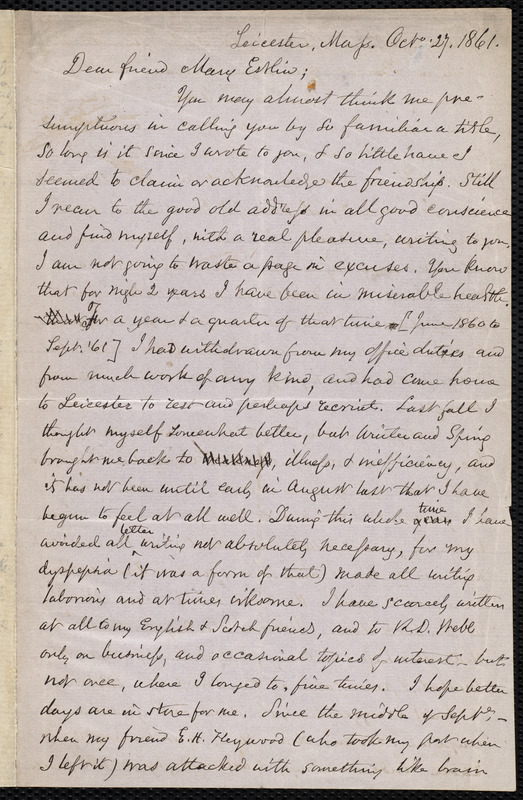 Leicester, Mass. Octo. 27. 1861.
Dear friend Mary Estlin;
You may almost think me pre-
sumptuous in calling you by so familiar a title,
So long is it since I wrote to you, & so little have I
seemed to claim or acknowledge the friendship. Still
I recur to the good old address in all good conscience
and find myself, with a real pleasure, writing to you.
I am not going to waste a page in excuses. You know
that for nigh 2 years I have been in miserable health.
For a year & a quarter of that time [June 1860 to
Sept. '61] I had withdrawn from my office duties and
from much work of any kind, and had come home
to Leicester to rest and perhaps recruit. Last fall I
thought myself somewhat better, but Winter and Spring
brought me back to illness, & inefficiency, and
it has not been until early in August last that I have
begun to feel at all well. During this whole time I have
avoided all letter writing not absolutely necessary, for my
dyspepsia (it was a form of that) made all writing
laborious and at times irksome. I have scarcely written
at all to my English & Scotch friends, and to R. D. Webb
only on business, and occasional topics of interest - but
not once, where I longed to, five times. I hope better
days are in store for me. Since the middle of Septr. -
when my friend E. H. Heywood (who took my post when
I left it) was attacked with something like brain